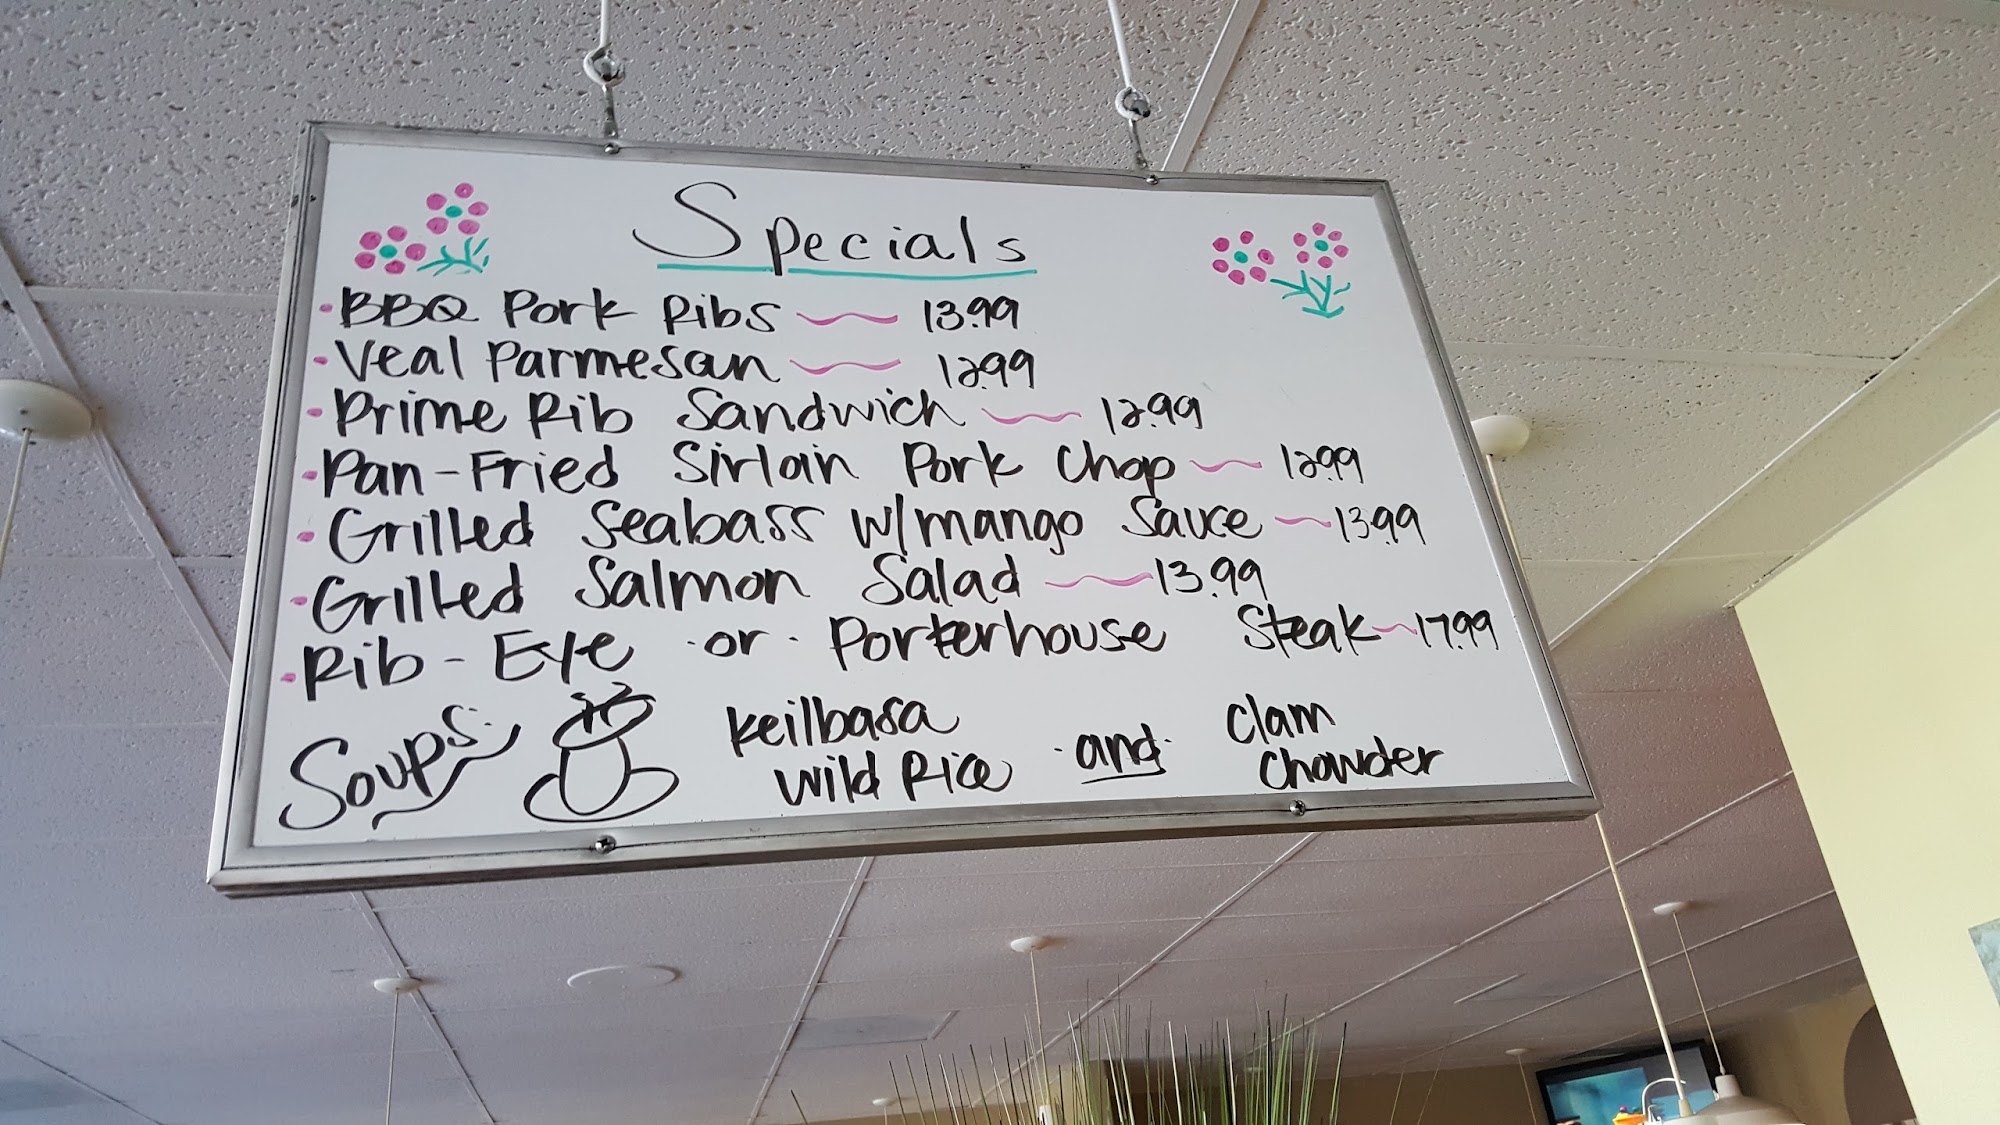 Specials
• BBQ Pork Ribs 13.99
• Veal Parmesan 12.99
• Prime Rib Sandwich 12.99
• Pan-Fried Sirloin Pork Chop 12.99
• Grilled Seabass w/mango Sauce 13.99
• Grilled Salmon Salad 13.99
• Rib-Eye or Porterhouse Steak 17.99
Soups: Keilbasa Wild Rice and Clam Chowder